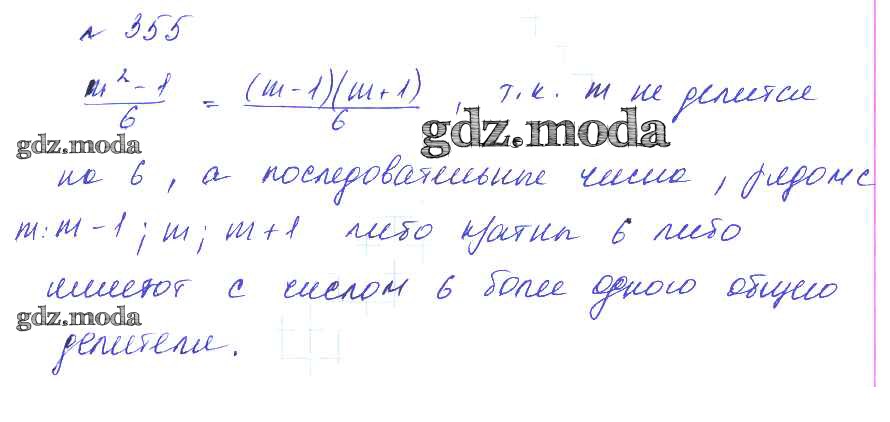 № 355
(m² - 1)/6 = ((m-1)(m+1))/6, т.к. m не делится
gdz.moda
gdz.moda
на 6, а последовательные числа, рядом с
m: m-1; m; m+1 либо кратны 6 либо
имеют с числом 6 более одного общего
gdz.moda
делителя.